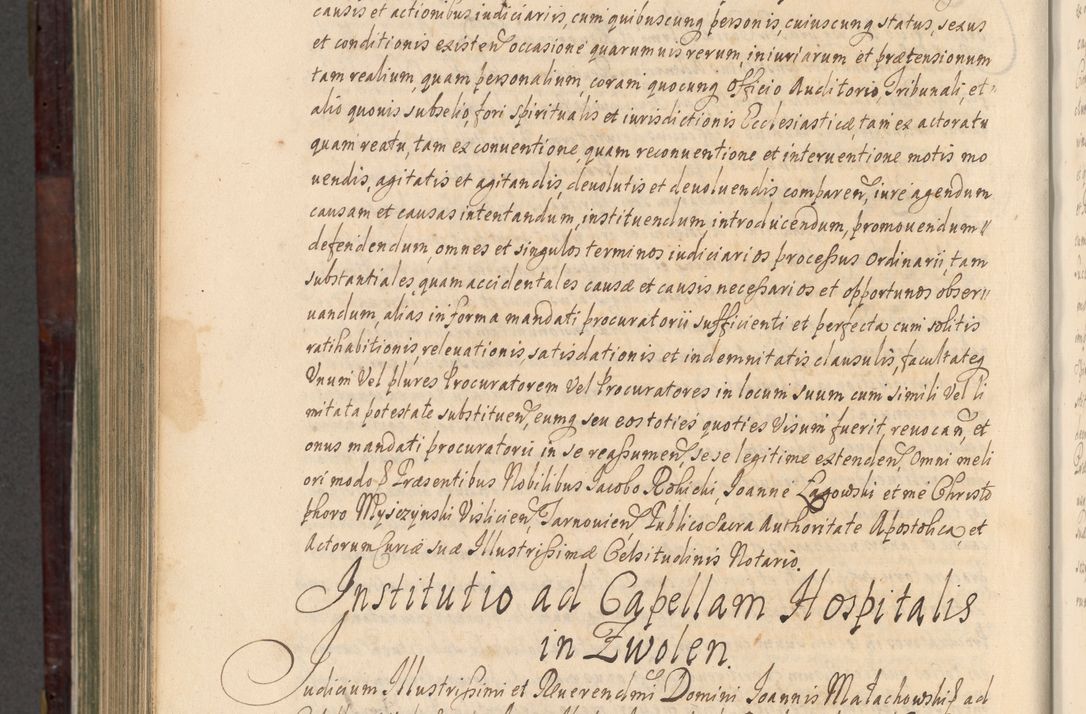 causis et actionibus iudiciariis, cum quibuscunq personis, cuiuscunq status, sexus
et conditionis existen occasione quarumuis rerum, iniuriarum et prætensionum
tam realium, quam personalium, coram quocunq Officio Auditorio, Tribunali, et
alio quouis subselio, fori spiritualis et iurisdictionis Ecclesiasticæ, tam ex actoratu
quam reatu, tam ex conuentione quam reconuentione et interuentione motis mo
uendis, agitatis et agitandis, deuolutis et deuoluendis, comparen, iure agendum
causam et causas intentandum, instituendum introducendum, promouendum
defendendum, omnes et singulos terminos iudiciarios processus Ordinarii, tam
substantiales quam accidentales causæ et causis necessarios et opportunos obser
uandum, alias in forma mandati procuratorii sufficienti et perfecta cum solitis
ratihabitionis, releuationis, satisdationis et indemnitatis clausulis, facultateq
Vnum Vel plures Procuratorem Vel Procuratores in locum suum cum simili Vel li
mitata potestate substituen, eumq seu eos toties quoties Visum fuerit, reuocan, et
onus mandati procuratorii in se reassumen, sese legitime extenden, Omni meli
ori modo & Præsentibus Nobilibus Jacobo Rokicki, Joanne Łagowski et me Christo
phoro Myszynski Vislicien, Tarnouien Publico Sacra Authoritate Apostolica, et
Actorum Curiæ suæ Illustrissimæ Celsitudinis Notario.
Institutio ad Capellam Hospitalis
in Zwolen.
Iudicium Illustrissimi et Reuerendmi Domini Joannis Małachowski & ad